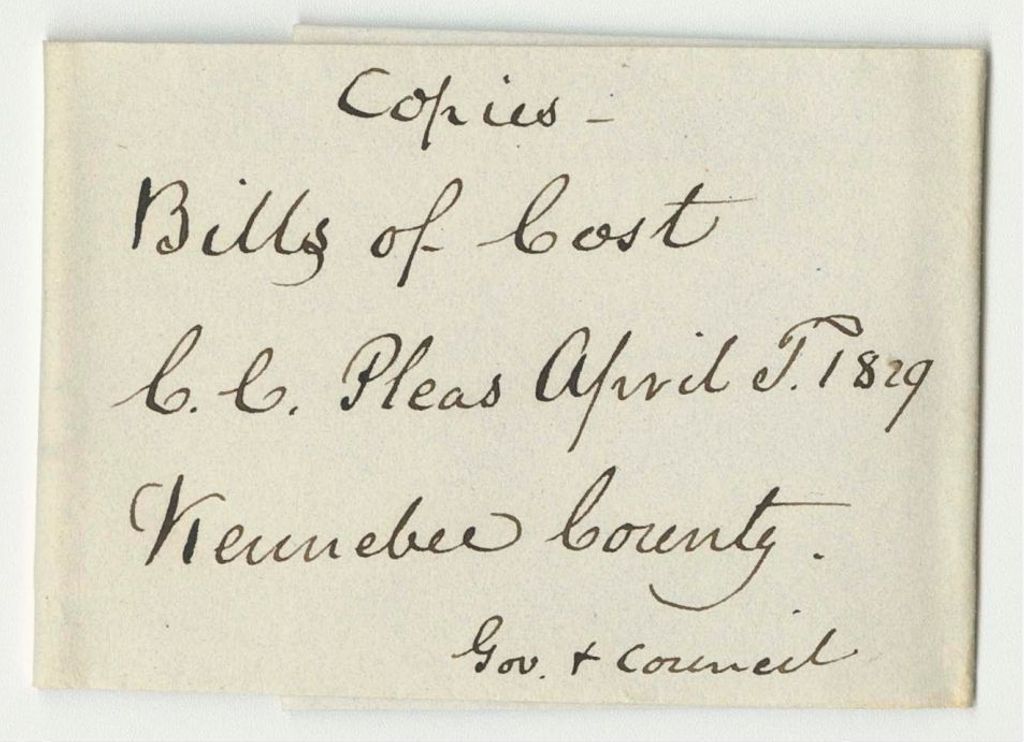 Copies -
Bills of Cost
C. C. Pleas April T. 1829
Kennebec County.
Gov. + Council